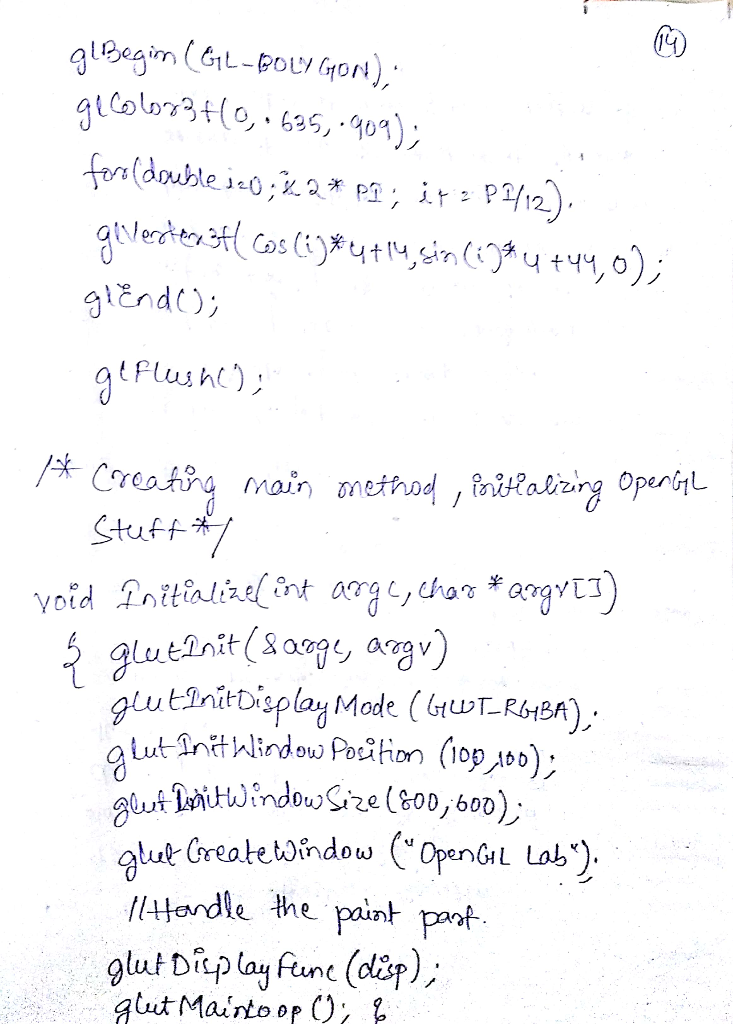 14
glBegin (GL-POLYGON);
glColor3f(0, .635, .909);
for(double i=0; i<2* PI; i+=PI/12).
glVertex3f( Cos(i)*4+14, sin(i)*4+44, 0);
glEnd();
glFlush();
/* Creating main method, initializing OpenGL
Stuff */
void Initialize(int argc, char *argv[])
{ glutInit(&argc, argv)
glutInitDisplayMode (GLUT_RGBA);
glutInitWindowPosition (100,100);
glutInitWindowSize(800,600);
glutCreateWindow ("OpenGL Lab");
//Handle the paint part.
glutDisplayFunc(disp);
glutMainLoop(); }